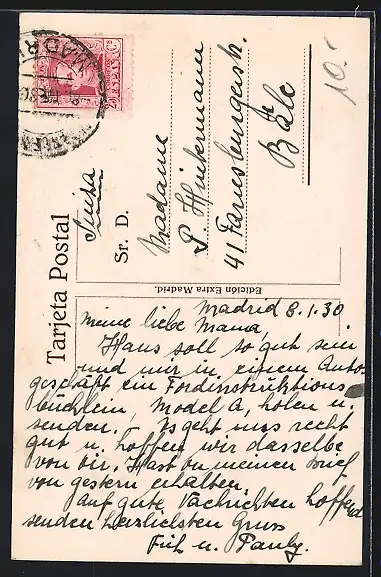 10.-
MADRID
Tarjeta Postal
Suiza
Sr. D.
Madame
P.
41 Farnsburgerstr.
Bâle
Edición Extra Madrid.
Madrid 8.1.30
Meine liebe Mama,
Hans soll so gut sein
und mir in einem Auto-
geschäft ein Fordinstruktions
büchlein, Model A, holen u.
senden. Es geht uns recht
gut u. hoffen wir dasselbe
von dir. Hast du meinen Brief
von gestern erhalten.
Auf gute Nachrichten hoffend
senden herzlichsten Gruss
u.